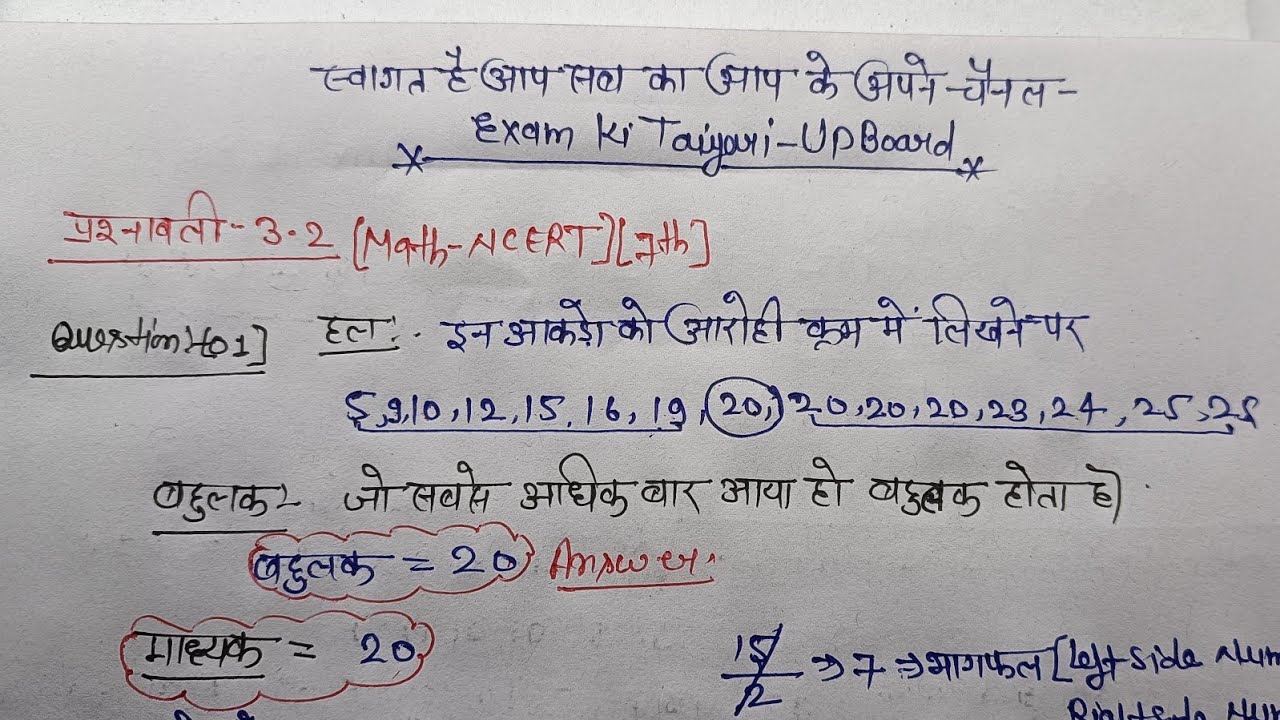 स्वागत है आप सब का आप के अपने चैनल -
Exam Ki Taiyari - UP Board
प्रश्नावली - 3.2 [Math - NCERT] [7th]
Question + [01] हलः- इन आकड़ो को आरोही क्रम में लिखने पर
5, 9, 10, 12, 15, 16, 19, 20, 20, 20, 20, 23, 24, 25, 25
बहुलक :- जो सबसे अधिक बार आया हो बहुलक होता है)
बहुलक = 20 Answer.
माध्यक = 20 15/2 ⇒ 7 ⇒ भागफल [Left side Num